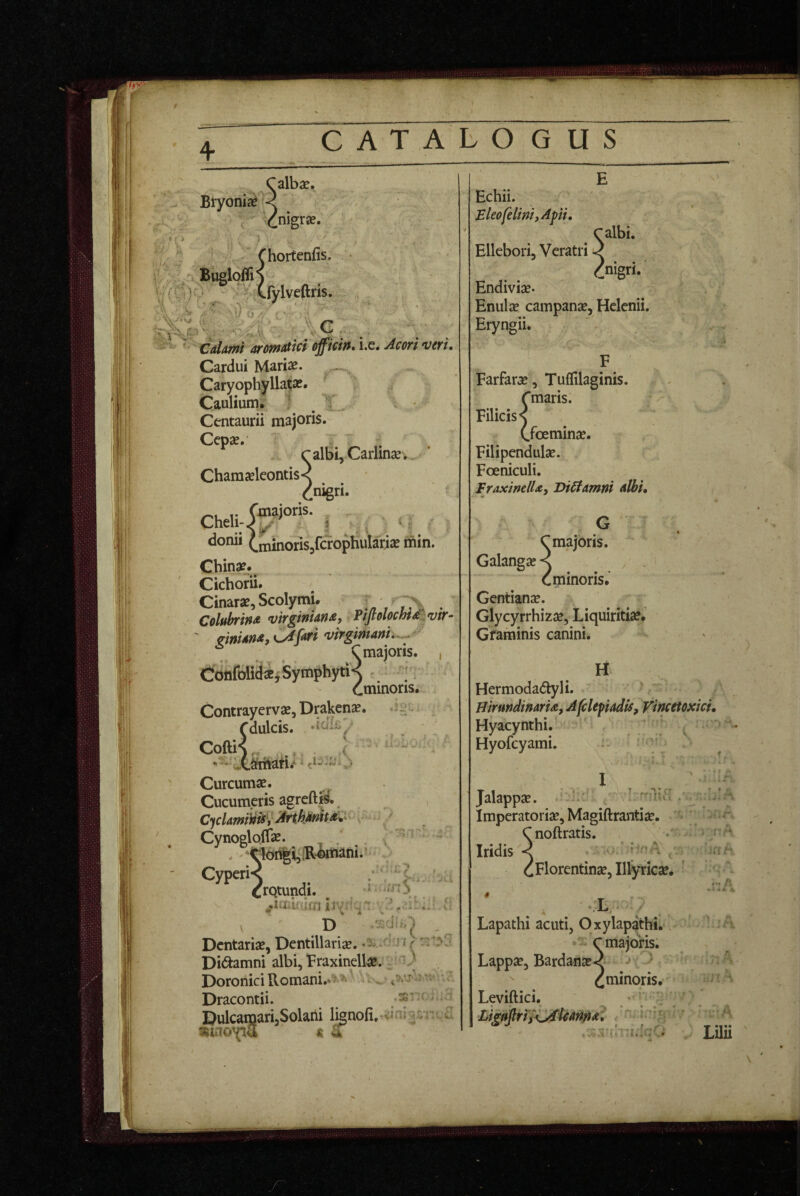 4 CATALOGUS
albæ.
Bryoniæ
nigræ.
hortenſis.
Bugloſſi
ſylveſtris.
C
Calami aromatici officin. i.e. Acori veri.
Cardui Mariæ.
Caryophyllatæ.
Caulium.
Centaurii majoris.
Cepæ.
albi, Carlinæ.
Chamæleontis
nigri.
majoris.
Cheli-
donii minoris, ſcrophulariæ min.
Chinæ.
Cichorii.
Cinaræ, Scolymi.
Colubrinæ virginianæ, Piſtolochiæ vir-
ginianæ, Aſari virginiani.
majoris.
Conſolidæ, Symphyti
minoris.
Contrayervæ, Drakenæ.
dulcis.
Coſti
amari.
Curcumæ.
Cucumeris agreſtis.
Cyclaminis, Arthanitæ.
Cynogloſſæ.
longi, Romani.
Cyperi
rotundi.
D
Dentariæ, Dentillariæ.
Dictamni albi, Fraxinellæ.
Doronici Romani.
Dracontii.
Dulcamari, Solani lignoſi.
E
Echii.
Eleoſelini, Apii.
albi.
Ellebori, Veratri
nigri.
Endiviæ.
Enulæ campanæ, Helenii.
Eryngii.
F
Farfaræ, Tuſſilaginis.
maris.
Filicis
fœminæ.
Filipendulæ.
Fœniculi.
Fraxinellæ, Dictamni albi.
G
majoris.
Galangæ
minoris.
Gentianæ.
Glycyrrhizæ, Liquiritiæ.
Graminis canini.
H
Hermodactyli.
Hirundinariæ, Aſclepiadis, Vincetoxici.
Hyacynthi.
Hyoſcyami.
I
Jalappæ.
Imperatoriæ, Magiſtrantiæ.
noſtratis.
Iridis
Florentinæ, Illyricæ.
L
Lapathi acuti, Oxylapathi.
majoris.
Lappæ, Bardanæ
minoris.
Leviſtici.
Liguſtri, Alcannæ.
Lilii